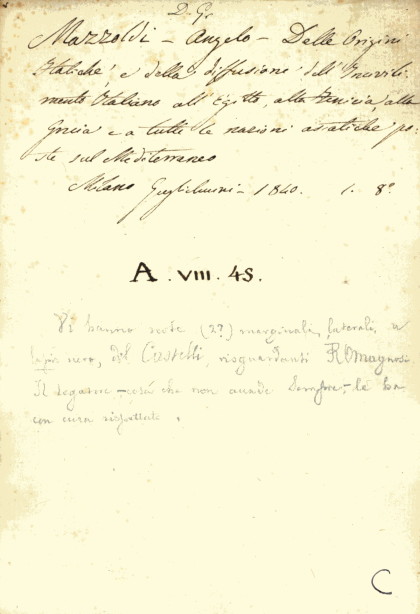 D. Gr
Mazzoldi - Angelo - Delle Origini
Italiche e della diffusione dell' Incivili
mento Italiano all' Egitto, alla Fenicia, alla
Grecia e a tutte le nazioni asiatiche po-
ste sul Mediterraneo
Milano Guglielmini - 1840. 1. 8º
A. VIII. 45.
Vi hanno note (2?) marginali, laterali, a
lapis nero, del Castelli, risguardanti Romagnosi
Il legatore - cosa che non accade sempre, - le ha
con cura rispettate.
C